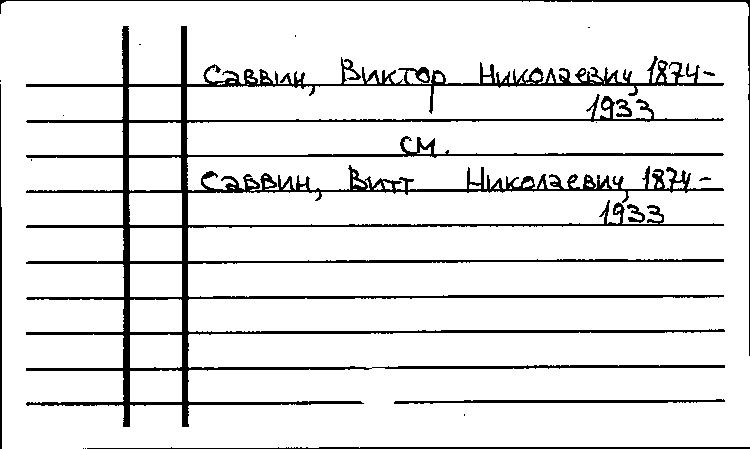 Саввин, Виктор Николаевич, 1874-
1933
см.
Саввин, Витт Николаевич, 1874-
1933